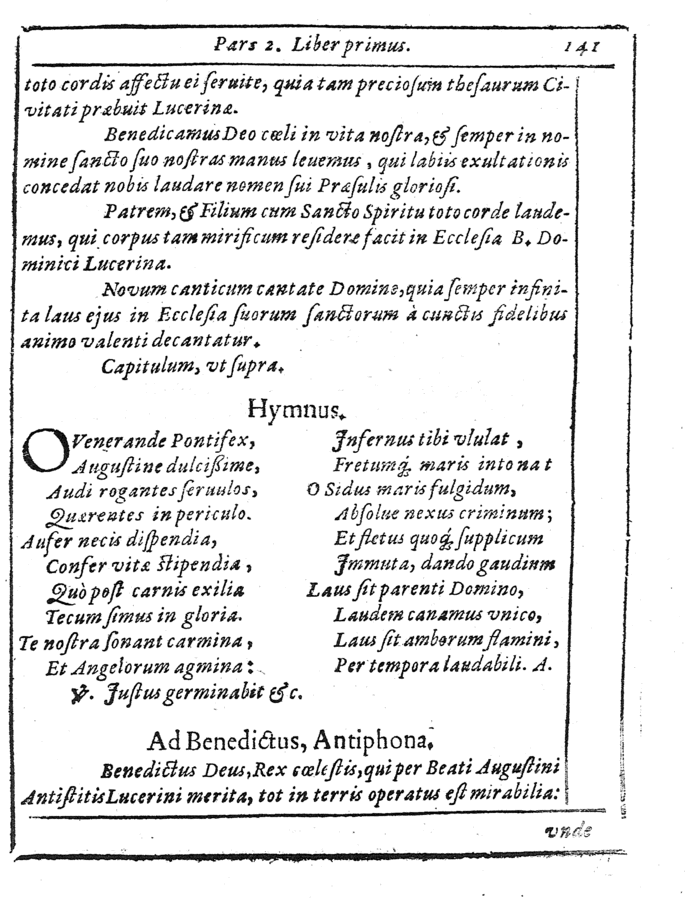 Pars 2. Liber primus. 141
toto cordis affectu ei seruite, quia tam preciosum thesaurum Ci-
vitati præbuit Lucerinæ.
Benedicamus Deo cœli in vita nostra, & semper in no-
mine sancto suo nostras manus leuemus, qui labiis exultationis
concedat nobis laudare nomen sui Præsulis gloriosi.
Patrem, & Filium cum Sancto Spiritu toto corde laude-
mus, qui corpus tam mirificum residere facit in Ecclesia B. Do-
minici Lucerina.
Novum canticum cantate Domino, quia semper infini-
ta laus ejus in Ecclesia suorum sanctorum à cunctis fidelibus
animo valenti decantatur.
Capitulum, vt supra.
Hymnus.
O Venerande Pontifex,
Augustine dulcissime,
Audi rogantes seruulos,
Quærentes in periculo.
Aufer necis dispendia,
Confer vitæ stipendia,
Quò post carnis exilia
Tecum simus in gloria.
Te nostra sonant carmina,
Et Angelorum agmina:
Infernus tibi vlulat,
Fretumq́; maris intonat
O Sidus maris fulgidum,
Absolue nexus criminum;
Et fletus quoq́; supplicum
Immuta, dando gaudium
Laus sit parenti Domino,
Laudem canamus vnico,
Laus sit amborum flamini,
Per tempora laudabili. A.
℣. Justus germinabit &c.
Ad Benedictus, Antiphona.
Benedictus Deus, Rex cœlestis, qui per Beati Augustini
Antistitis Lucerini merita, tot in terris operatus est mirabilia:
vnde